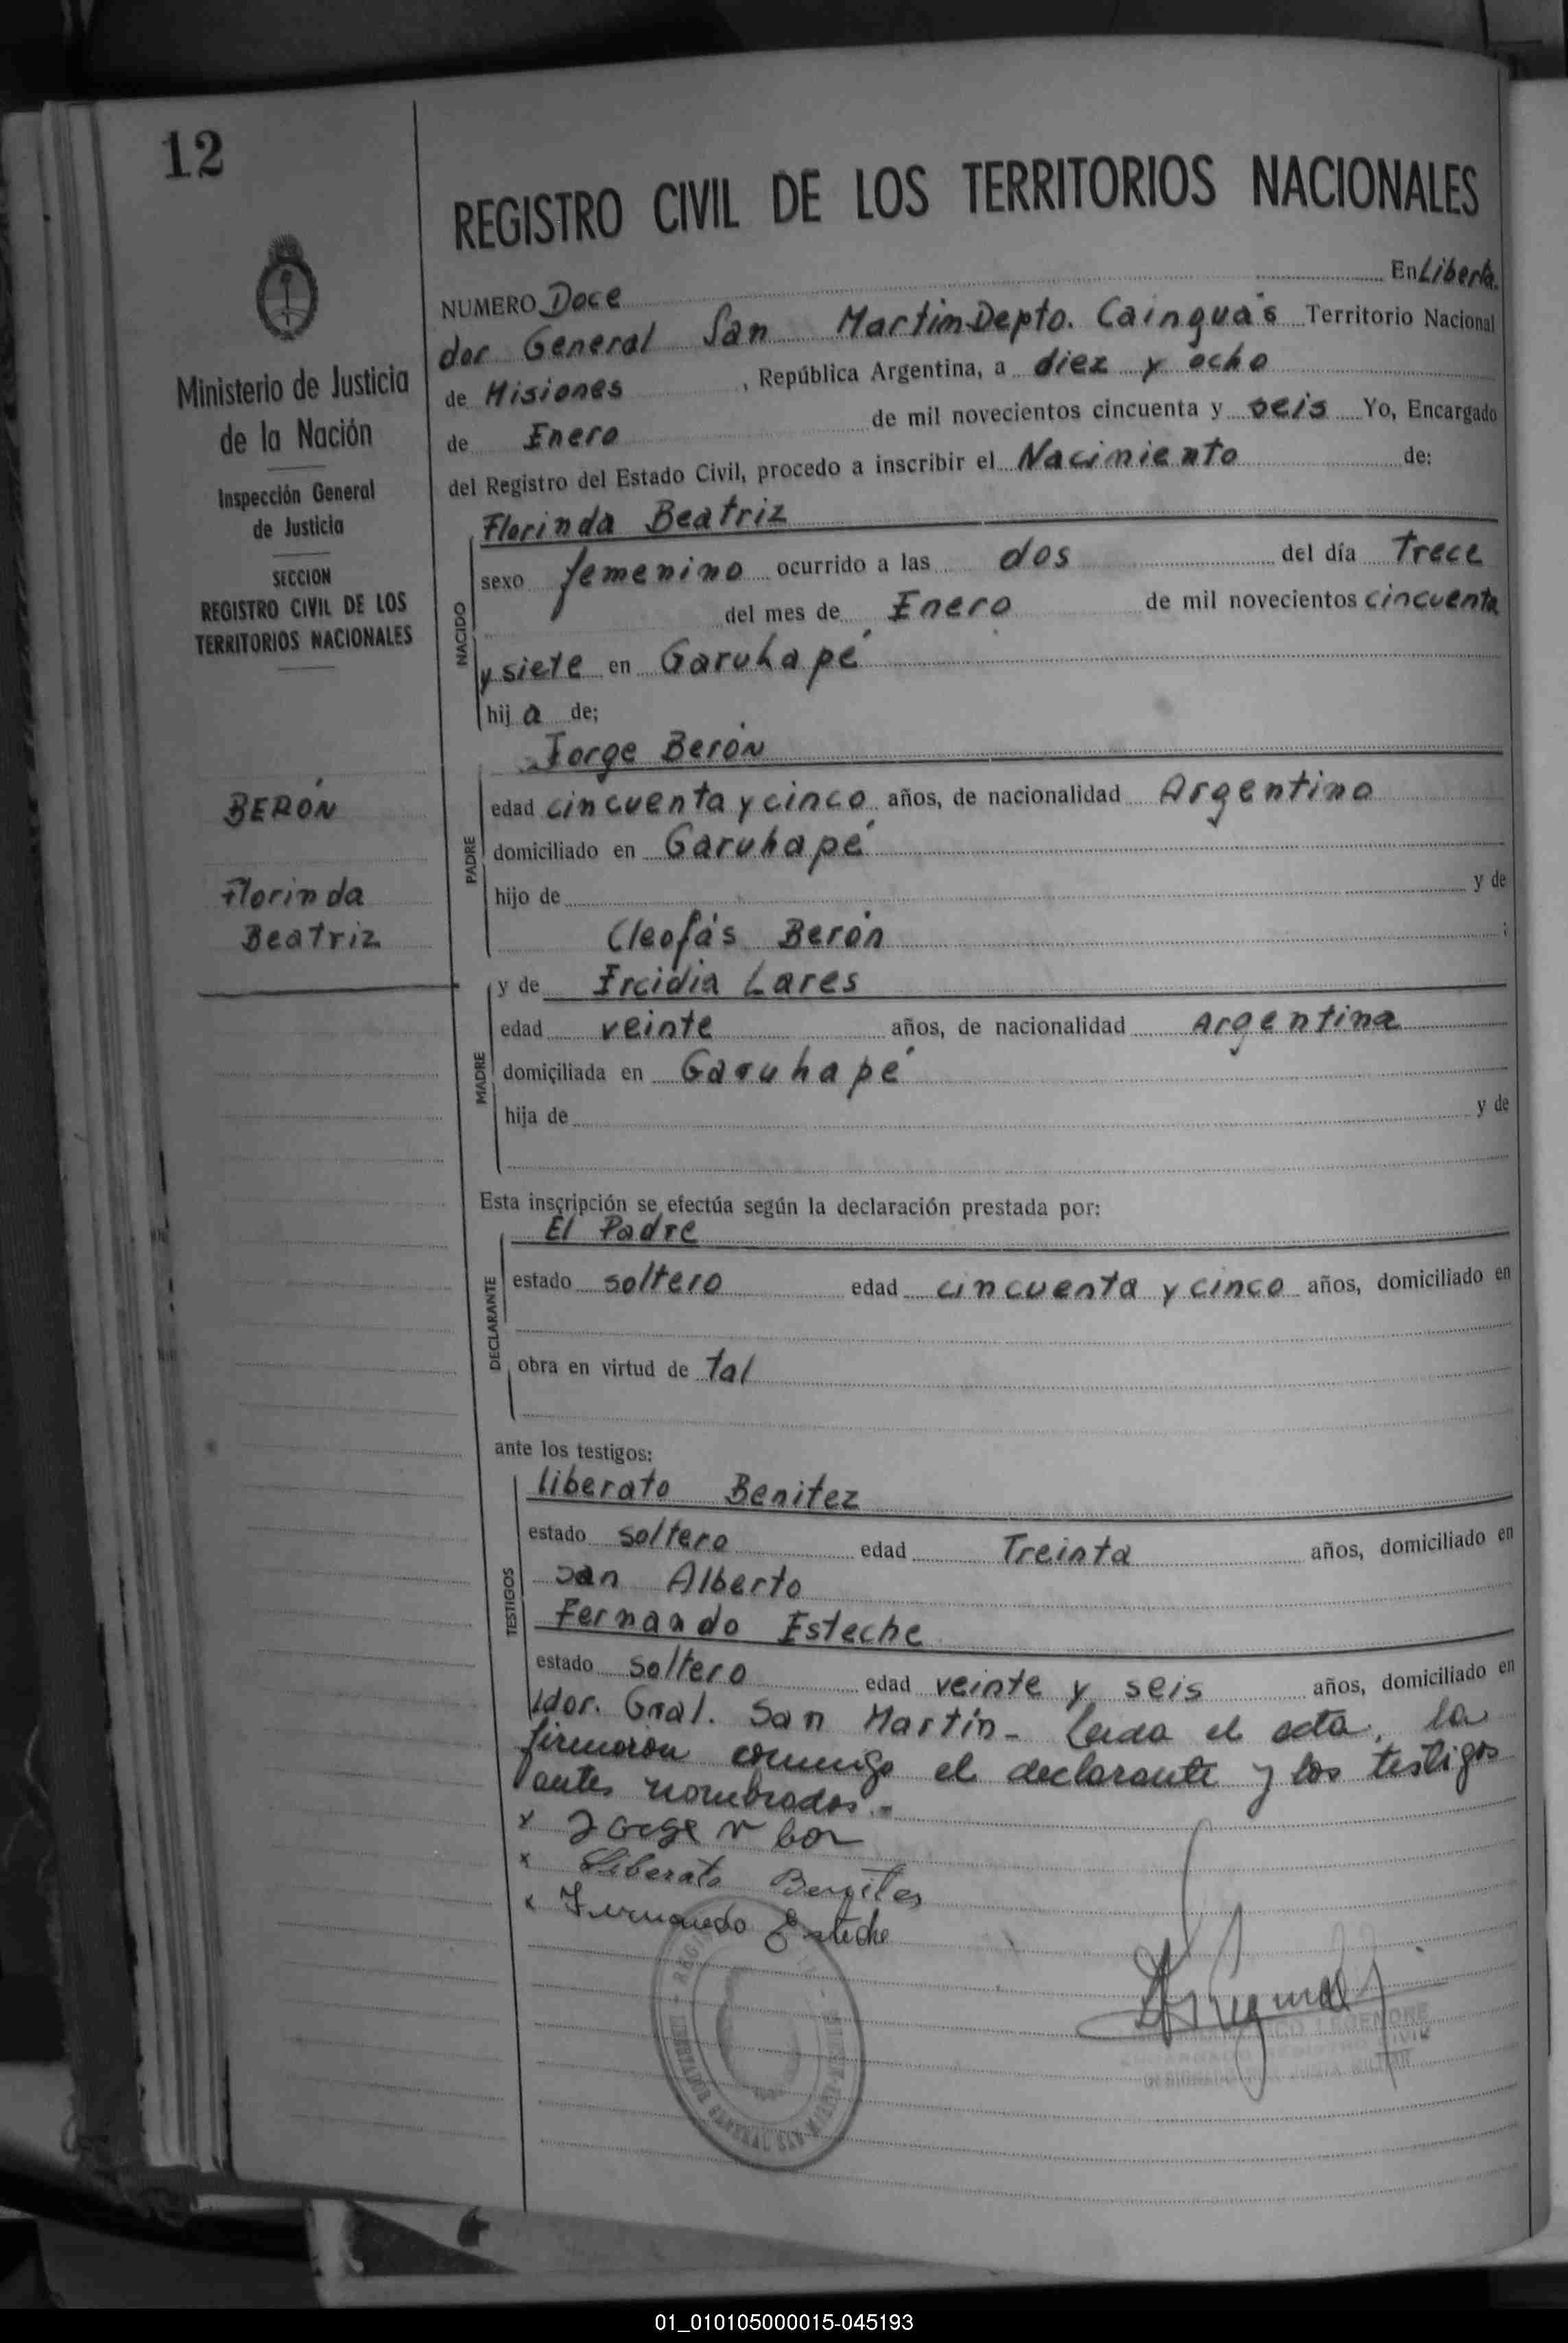 12
REGISTRO CIVIL DE LOS TERRITORIOS NACIONALES
Ministerio de Justicia
de la Nación
Inspección General
de Justicia
SECCION
REGISTRO CIVIL DE LOS
TERRITORIOS NACIONALES
BERÓN
Florinda
Beatriz
NUMERO Doce En Liberta.
dor General San Martin Depto. Cainguás Territorio Nacional
de Misiones, República Argentina, a diez y ocho
de Enero de mil novecientos cincuenta y seis Yo, Encargado
del Registro del Estado Civil, procedo a inscribir el Nacimiento de:
NACIDO
Florinda Beatriz
sexo femenino ocurrido a las dos del día Trece
del mes de Enero de mil novecientos cincuenta
y siete en Garuhapé
hij a de;
PADRE
Jorge Berón
edad cincuenta y cinco años, de nacionalidad Argentino
domiciliado en Garuhapé
hijo de y de
Cleofás Berón ;
MADRE
y de Ircidia Lares
edad veinte años, de nacionalidad Argentina
domiciliada en Garuhapé
hija de y de
Esta inscripción se efectúa según la declaración prestada por:
DECLARANTE
El Padre
estado soltero edad cincuenta y cinco años, domiciliado en
obra en virtud de tal
ante los testigos:
TESTIGOS
liberato Benitez
estado soltero edad Treinta años, domiciliado en
San Alberto
Fernando Esteche
estado soltero edad veinte y seis años, domiciliado en
Ldor. Gral. San Martín - Leida el acta, la
firmaron conmigo el declarante y los testigos
antes nombrados.-
x Jorge
x Liberato Benites
x Fernando Esteche
LIBERTADOR GENERAL SAN MARTIN
LEGENDRE
01_010105000015-045193